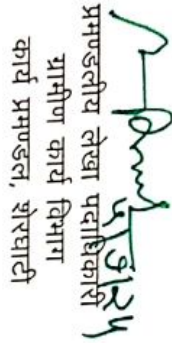 प्रमण्डलीय लेखा पदाधिकारी
ग्रामीण कार्य विभाग
कार्य प्रमण्डल, शेरघाटी